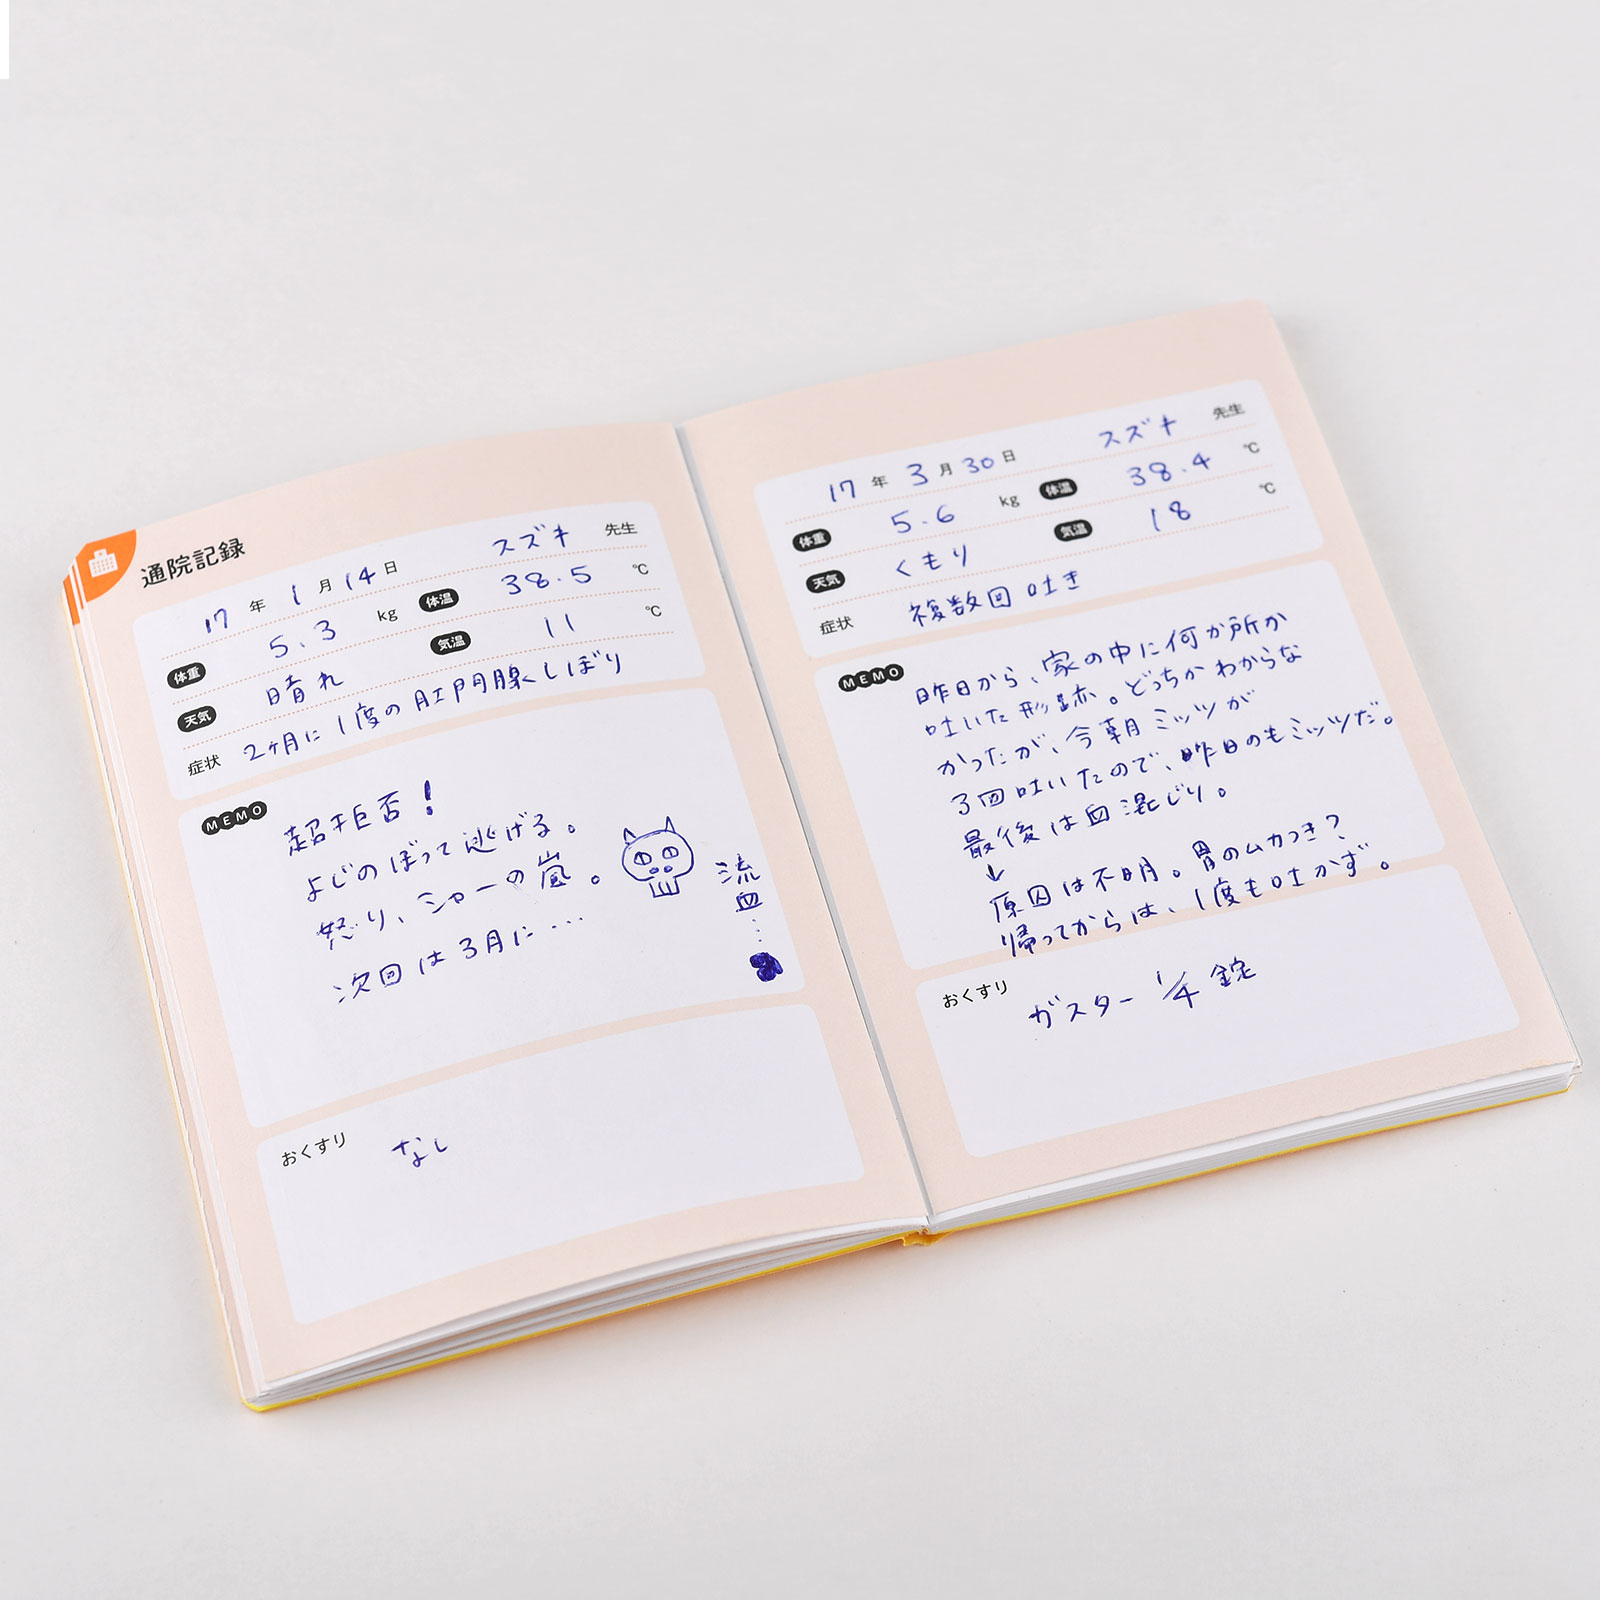 通院記録
17 年 1 月 14 日 スズキ 先生
体重 5.3 kg 体温 38.5 ℃
天気 晴れ 気温 11 ℃
症状 2ヶ月に1度の肛門腺しぼり
MEMO 超拒否！
よじのぼって逃げる。
怒り、シャーの嵐。
次回は3月に…
流血…
おくすり なし
17 年 3 月 30 日 スズキ 先生
体重 5.6 kg 体温 38.4 ℃
天気 くもり 気温 18 ℃
症状 複数回吐き
MEMO 昨日から、家の中に何か所か
吐いた形跡。どっちかわからな
かったが、今朝ミッツが
3回吐いたので、昨日のもミッツだ。
最後は血混じり。
↓
原因は不明。胃のムカつき？
帰ってからは、1度も吐かず。
おくすり ガスター 1/4 錠